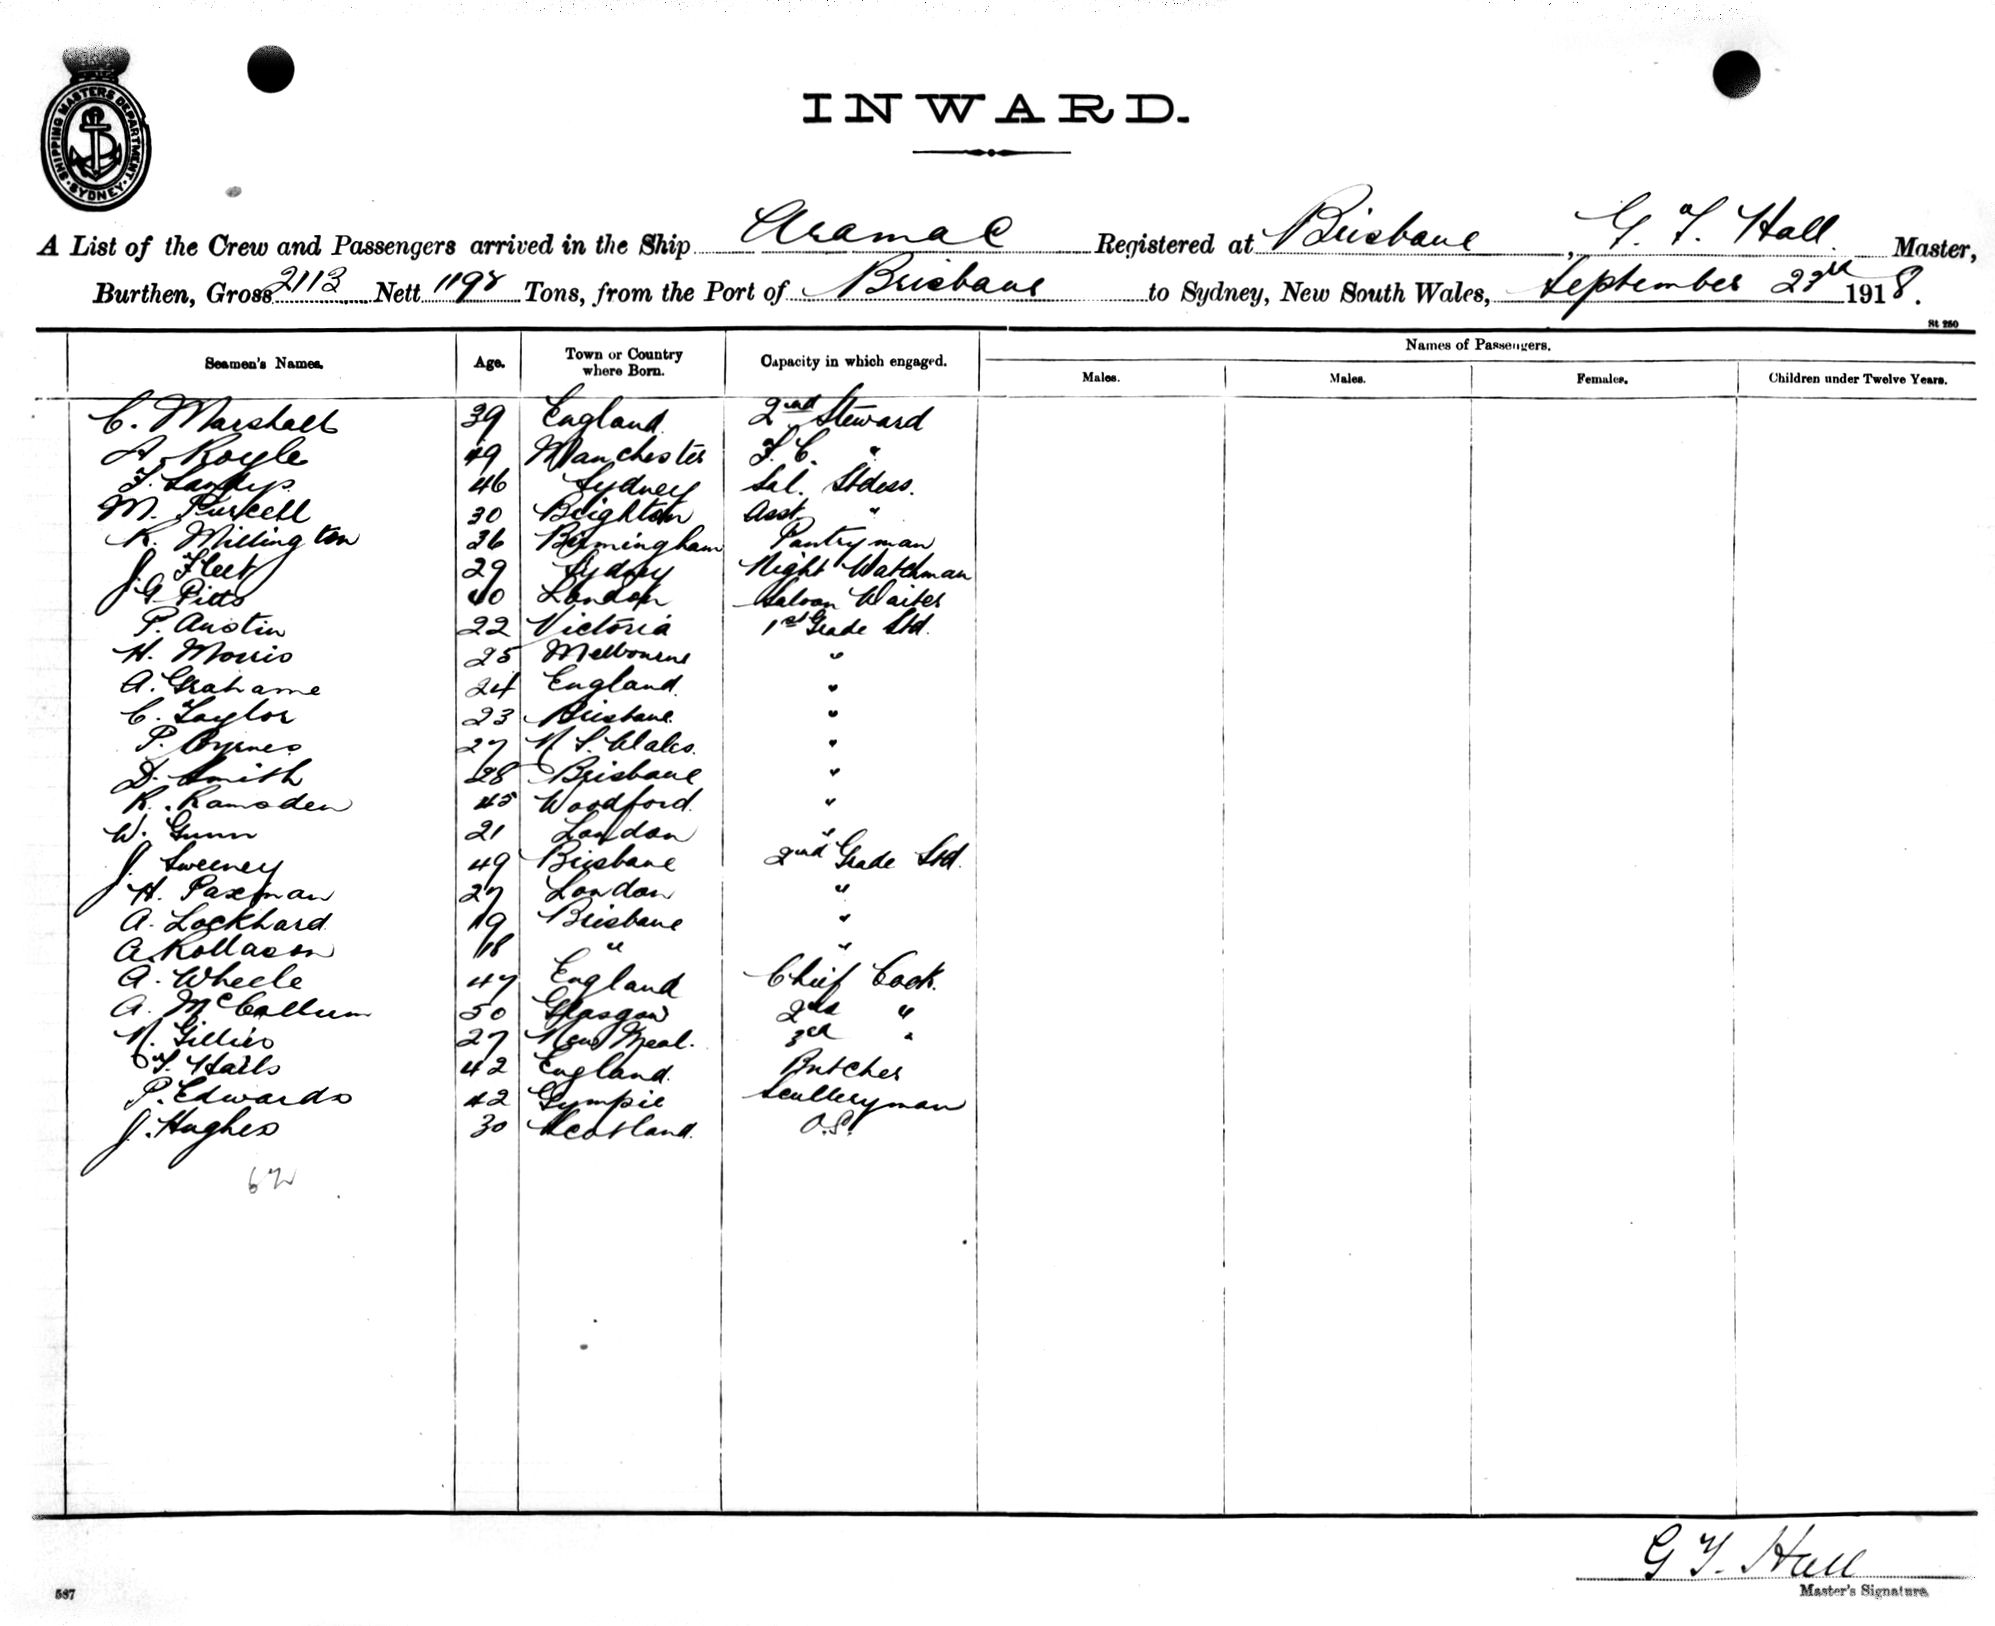 SHIPPING MASTERS DEPARTMENT · SYDNEY ·
INWARD.
A List of the Crew and Passengers arrived in the Ship Aramac Registered at Brisbane, G. T. Hall. Master,
Burthen, Gross 2113 Nett 1198 Tons, from the Port of Brisbane to Sydney, New South Wales, September 23rd 1918.
St 250
Seamen's Names. Age. Town or Country where Born. Capacity in which engaged. Names of Passengers.
Males. Males. Females. Children under Twelve Years.
C. Marshall 39 England 2nd Steward
A. Royle 49 Manchester F. C. "
F. 46 Sydney Sal. Stdess.
M. Purcell 30 Brighton Asst "
R. Millington 36 Birmingham Pantryman
J. Fleet 29 Sydney Night Watchman
G. Pitts 40 London Saloon Waiter
P. Austin 22 Victoria 1st Grade Std.
H. Morris 25 Melbourne "
A. Grahame 24 England "
C. Taylor 23 Brisbane "
P. Byrnes 27 N. S. Wales. "
D. Smith 28 Brisbane "
R. Ramsden 45 Woodford. "
W. Gunn 21 London "
J. Sweeney 49 Brisbane 2nd Grade Std.
H. Paxman 27 London "
A. Lockhard 19 Brisbane "
A Rollason 18 " "
A. Wheele 47 England Chief Cook.
A. McCallum 50 Glasgow 2nd "
N. Gillies 27 New Zeal. 3rd "
T. Hails 42 England. Butcher
P. Edwards 42 Gympie Sculleryman
J. Hughes 30 Scotland. O.S.
62
G T. Hall
Master's Signature
587